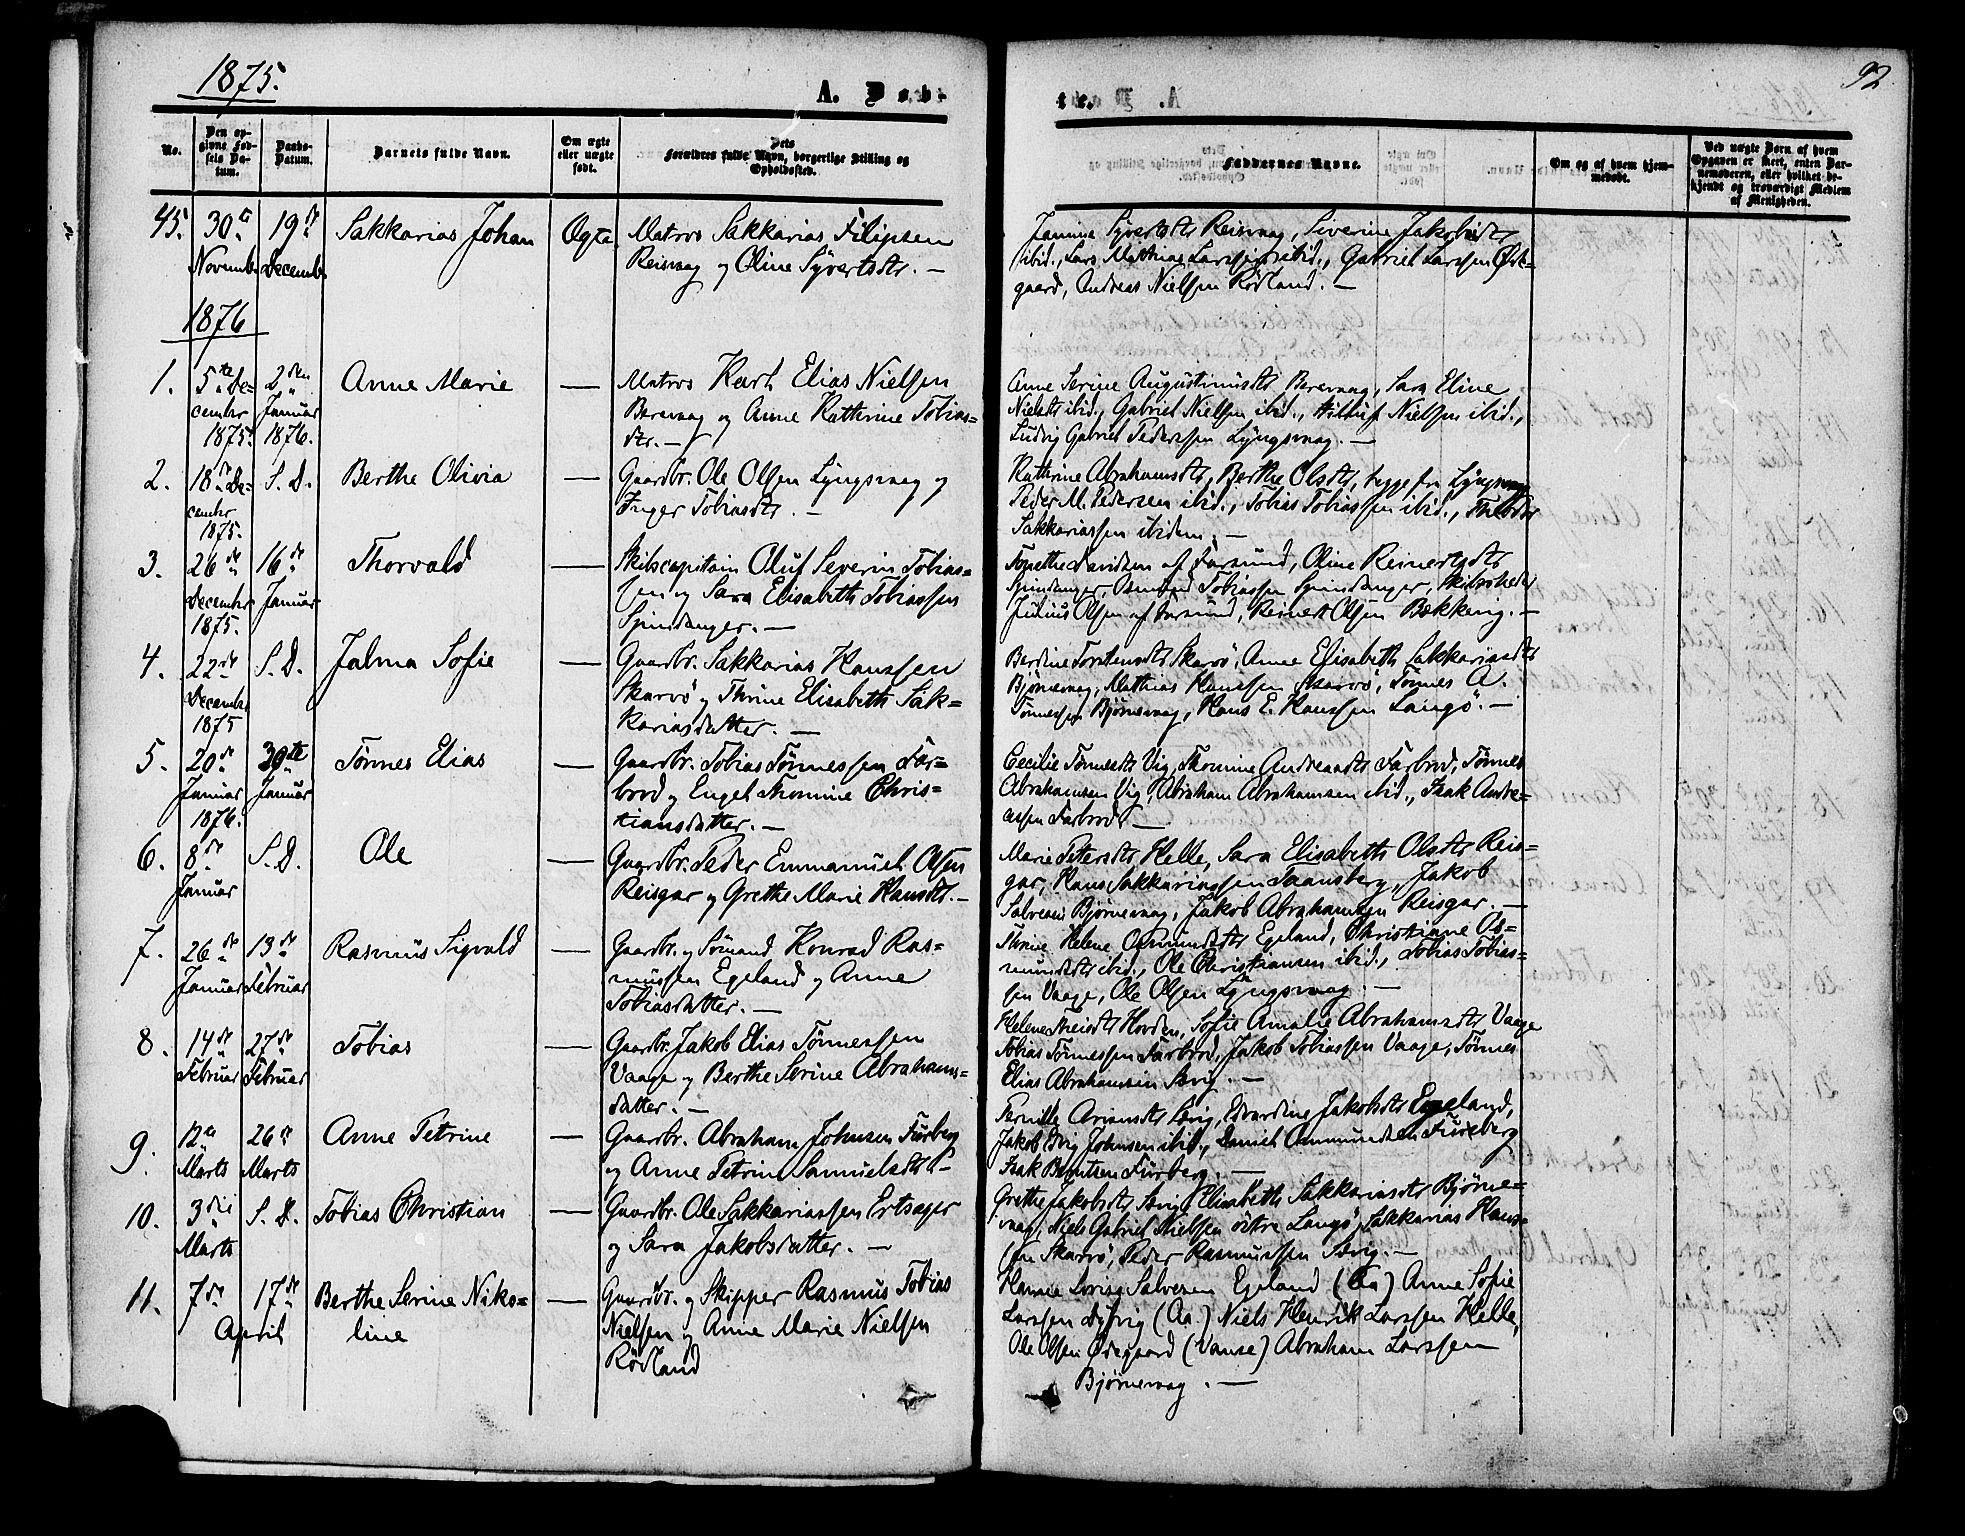 1875.
A. Dab-
No.
Den op-
givne Fød-
sels Da-
tum.
Daabs-
Datum.
Barnets fulde Navn.
Om ægte
eller uægte
født.
Dets
Forældres fulde Navn, borgerlige Stilling og
Opholdssted.
45. 30te 19de Sakkarias Johan Ægte Matros Sakkarias Filipsen
Novembr Decembr Reisvaag og Oline Syvertsdtr. —
1876
1. 5te De- 2den Anne Marie — Matros Karl Elias Nielsen
cembr Januar Berevaag og Anne Kathrine Tobias-
1875. 1876. dtr. —
2. 18de De- S. D. Berthe Olivia — Gaardbr. Ole Olsen Lyngsvaag og
cembr Inger Tobiasdtr. —
1875.
3. 26de 16de Thorvald — Skibscapitain Oluf Severin Tobias-
Decembr Januar sen og Sara Elisabeth Tobiassen
1875. Spindanger. —
4. 22de S. D. Jalma Sofie — Gaardbr. Sakkarias Hanssen
Decembr Skarvö og Thrine Elisabeth Sak-
1875 kariasdatter. —
5. 20de 30te Tønnes Elias — Gaardbr. Tobias Tønnessen Far-
Januar Januar brod og Engel Thomine Chris-
1876. tiansdatter. —
6. 8de S. D. Ole — Gaardbr. Peder Emmanuel Olsen
Januar Reisgar og Grethe Marie Hansdtr. —
7. 26de 13de Rasmus Sigvald — Gaardbr. og Sømand Konrad Ras-
Januar Februar mussen Egeland og Anne
Tobiasdatter. —
8. 14de 27de Tobias — Gaardbr. Jakob Elias Tønnessen
Februar Februar Vaage og Berthe Serine Abrahams-
datter. —
9. 12te 26de Anne Petrine — Gaardbr. Abraham Johnsen Furberg
Marts Marts og Anne Petrine Samuelsdtr. —
10. 3die S. D. Tobias Christian — Gaardbr. Ole Sakkariassen Ertsager
Marts og Sara Jakobsdatter. —
11. 7de 17de Berthe Serine Niko- — Gaardbr. og Skipper Rasmus Tobias
April line Nielsen og Anne Marie Nielsen
Rödland
92
te.
Faddernes Navne.
Om og af hvem hjem-
medøbt.
Ved uægte Børn af hvem
Opgaven er skeet, enten Bar-
nemoderen, eller hvilket be-
kjendt og troværdigt Medlem
af Menigheden.
Janine Syvertsdtr Reisvaag, Siverine Jakobsdtr
ibid., Lars Mathias Larssen ibid., Gabriel Larssen Øde-
gaard, Andreas Nielsen Rödland. —
Anne Serine Augustinusdtr Berevaag, Sara Eline
Nielsdtr ibid., Gabriel Nielsen ibid., Nielsen ibid.,
Ludvig Gabriel Pederssen Lyngsvaag. —
Kathrine Abrahamsdtr, Berthe Olsdtr, begge fra Lyngsvaag
Peder M. Pedersen ibid., Tobias Tobiassen ibid., Theodor
Sakkariassen ibidem. —
Tonethe Davidsen af Farsund, Oline Reinertsdtr
Spindanger, Osmund Tobiassen Spindanger, Skibsreder
Julius Olsen af Farsund, Reinert Olsen Bekkeng. —
Berdine Torstensdtr Skarvö, Anne Elisabeth Sakkariasdtr
Bjørnevaag, Mathias Hanssen Skarvö, Tønnes A.
Tønnessen Bjørnevaag, Hans E. Hanssen Langö. —
Cecilie Tønnesdtr Vig, Thomine Andreasdtr Farbrod, Tønnes
Abrahamsen Vig, Abraham Abrahamsen ibid., Isak Andre-
assen Farbrod —
Marie Petersdtr Helle, Sara Elisabeth Olsdtr Reis-
gar, Hans Sakkariassen Taansberg, Jakob
Salvesen Bjørnevaag, Jakob Abrahamsen Reisgar. —
Thrine Helene Osmundsdtr Egeland, Christiane Os-
mundsdtr ibid., Ole Christiansen ibid., Tobias Tobias-
sen Vaage, Ole Olsen Lyngsvaag. —
Helene Theisdtr Hovden, Sofie Amalie Abrahamsdtr Vaage
Tobias Tønnessen Farbrod, Jakob Tobiassen Vaage, Tønnes
Elias Abrahamsen Svig. —
Pernille Ariansdtr Svig, Edvardine Jakobsdtr Egeland,
Jakob Johnsen ibid., Daniel Ommundsen Fureberg
Isak Berntsen Furberg. —
Grethe Jakobsdtr Svig, Elisabeth Sakkariasdtr Bjørne-
vaag, Niels Gabriel Nielsen östre Langö, Sakkarias Hans-
sen Skarvö, Peder Rasmussen Svig. —
Hanne Lovise Salvesen Egeland (Aa) Anne Sofie
Larssen (Aa.) Niels Henrik Larssen Helle,
Ole Olsen Ødegaard (Vanse) Abraham Larssen
Bjørnevaag. —